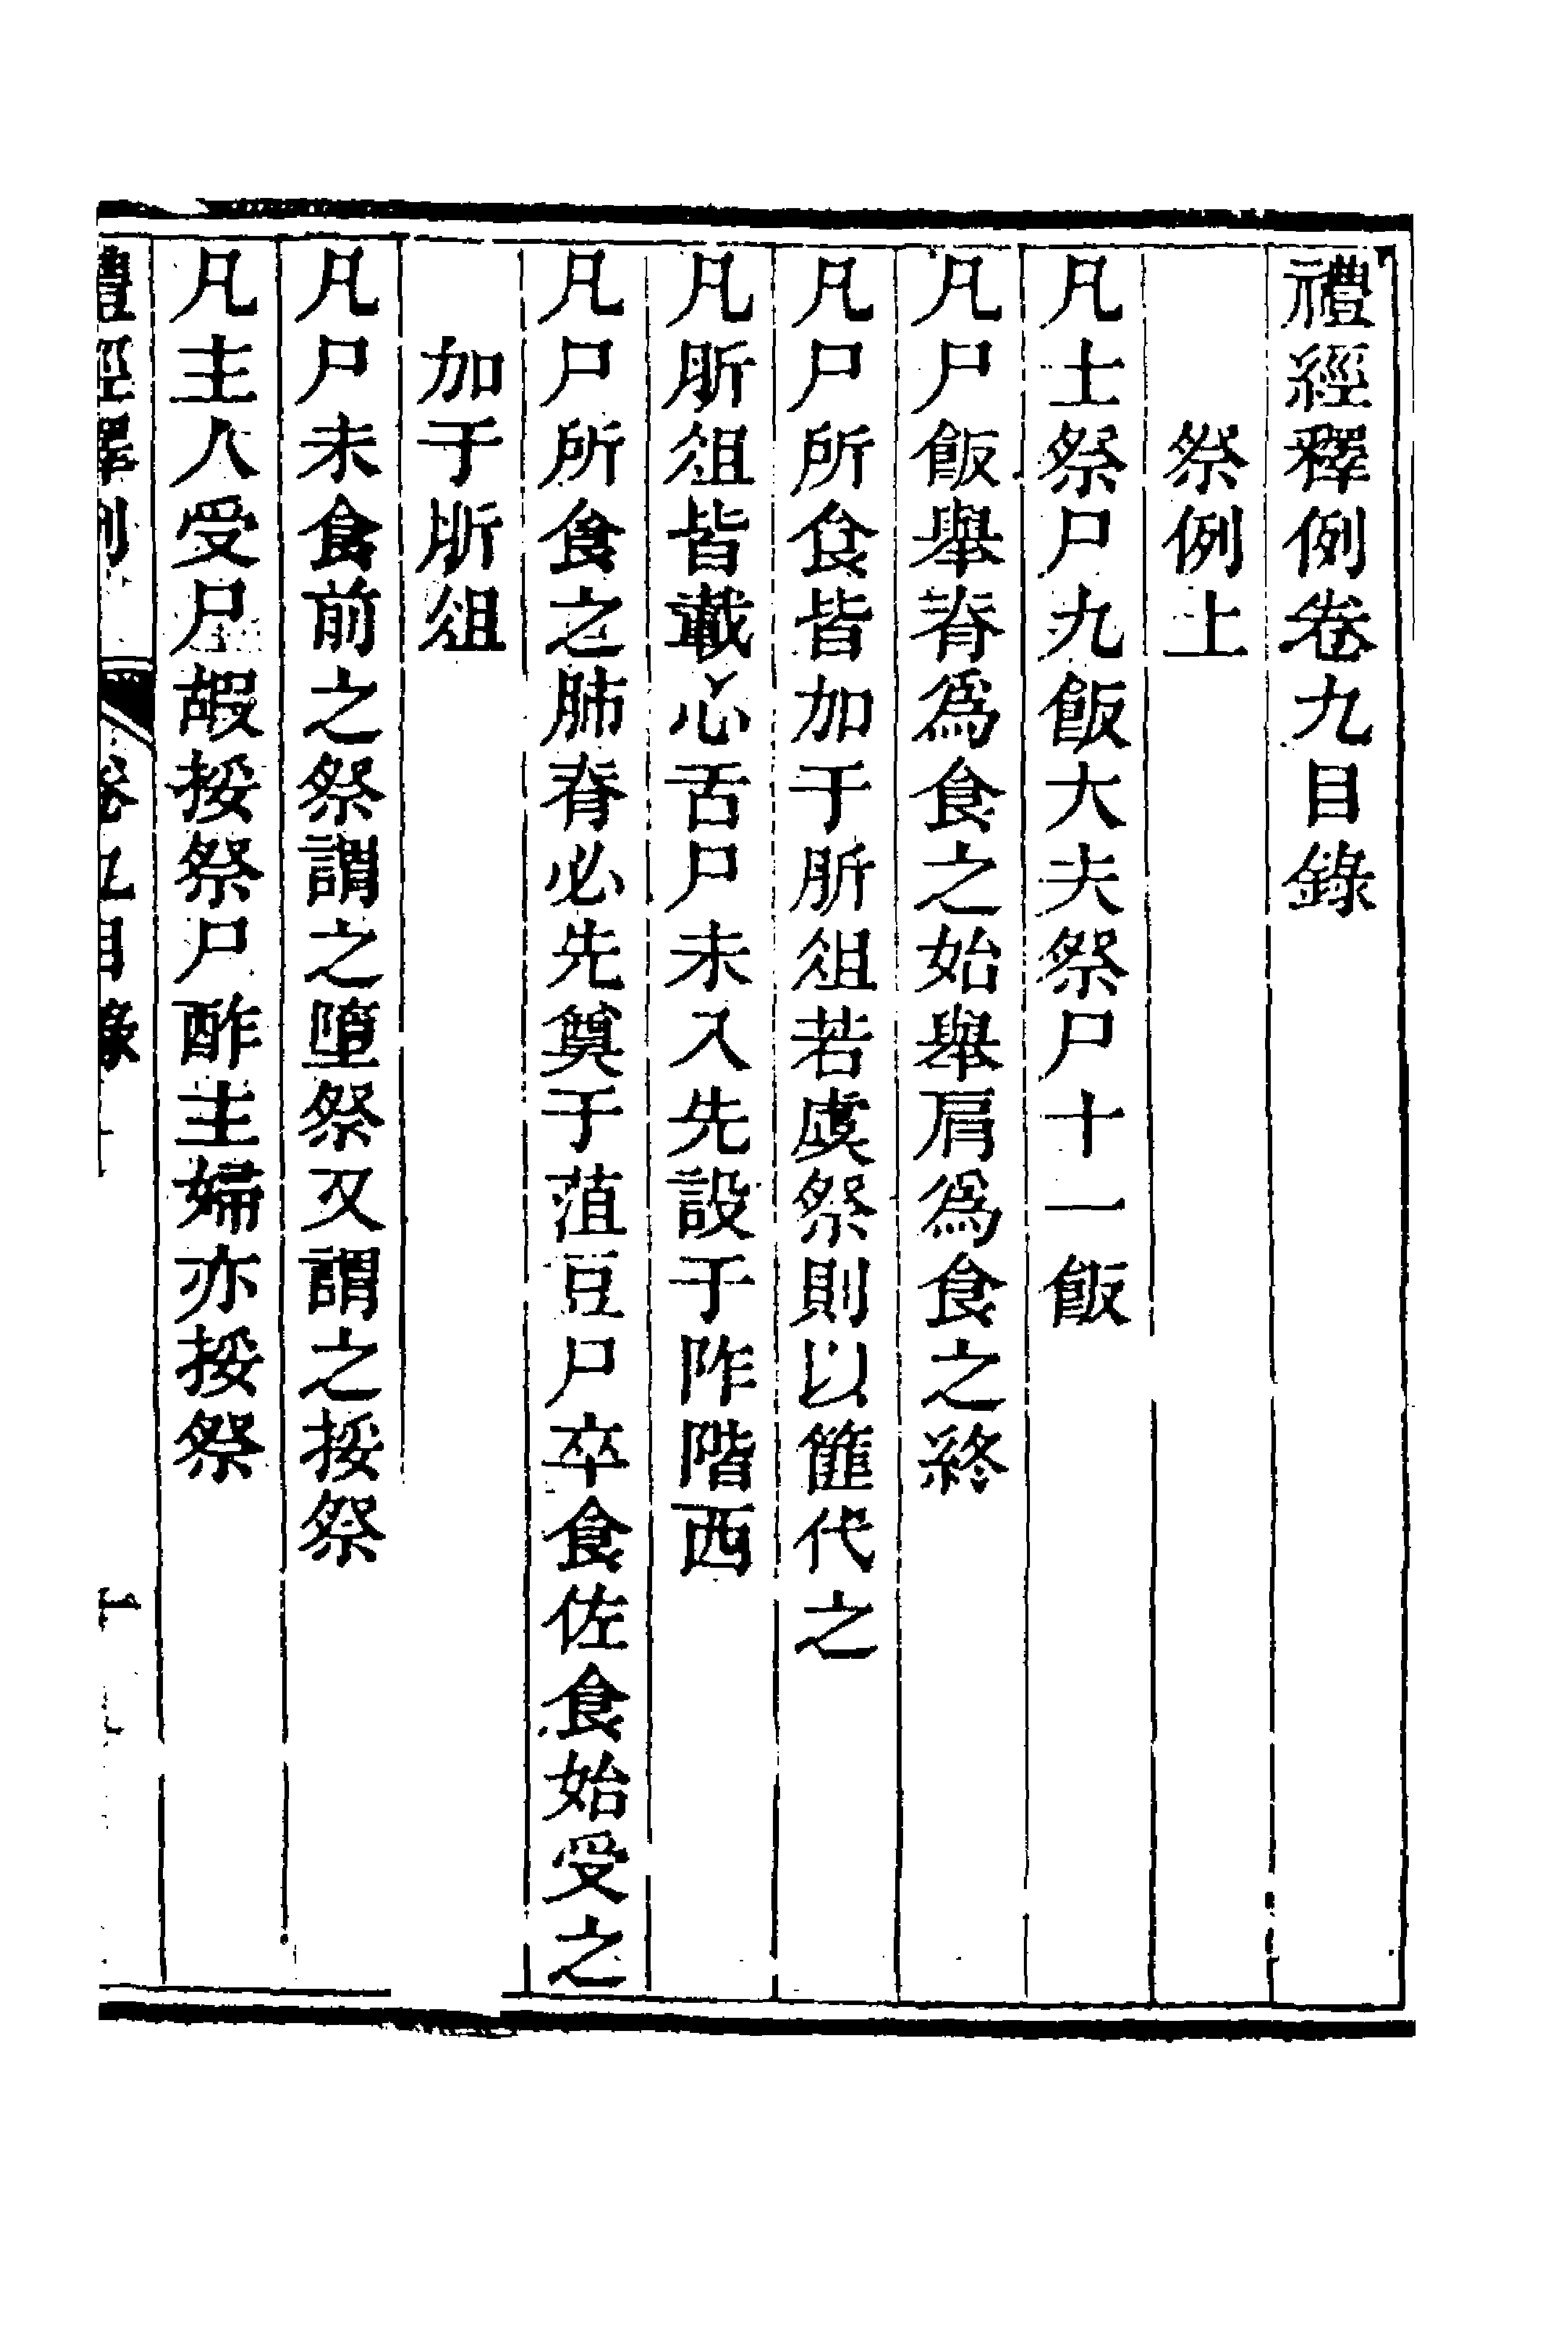 禮經釋例卷九目錄
祭例上
凡士祭尸九飯大夫祭尸十一飯
凡尸飯舉脊爲食之始舉肩爲食之終
凡尸所食皆加于肵俎若虞祭則以篚代之
凡肵俎皆載心舌尸未入先設于阼階西
凡尸所食之肺脊必先奠于菹豆尸卒食佐食始受之
加于肵俎
凡尸未食前之祭謂之墮祭又謂之挼祭
凡主人受尸嘏挼祭尸酢主婦亦挼祭
禮經釋例 卷九目錄 一